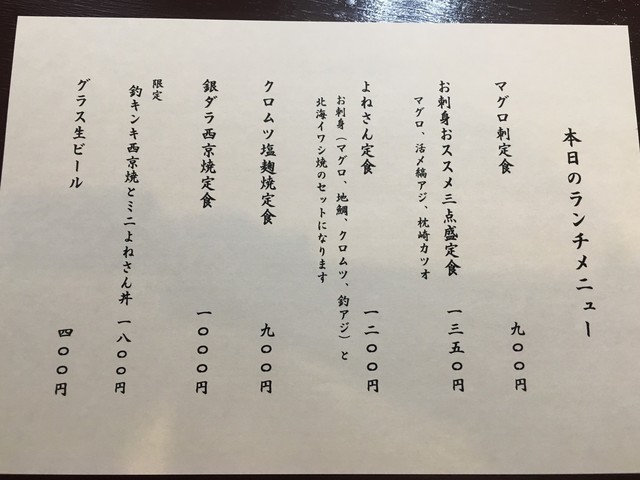 本日のランチメニュー
マグロ刺定食 九〇〇円
お刺身おススメ三点盛定食 一三五〇円
マグロ、活〆縞アジ、枕崎カツオ
よねさん定食 一二〇〇円
お刺身（マグロ、地鯛、クロムツ、釣アジ）と
北海イワシ焼のセットになります
クロムツ塩麹焼定食 九〇〇円
銀ダラ西京焼定食 一〇〇〇円
限定
釣キンキ西京焼とミニよねさん丼 一八〇〇円
グラス生ビール 四〇〇円